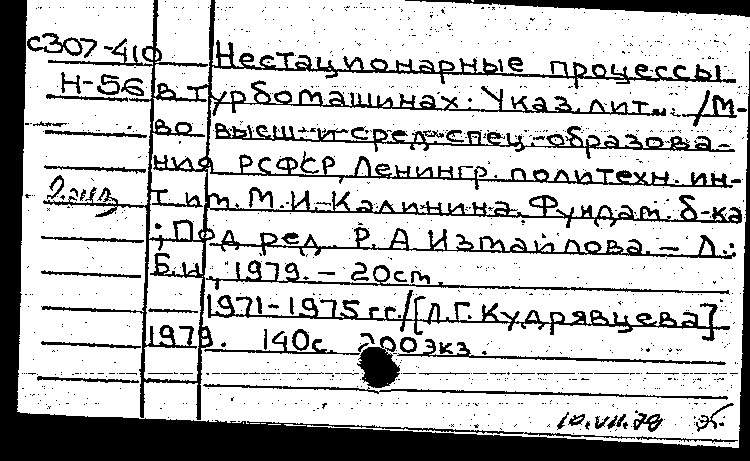 с307-410 Нестационарные процессы
Н-56 в турбомашинах: Указ. лит... /М-
во высш. и сред. спец. образова-
ния РСФСР, Ленингр. политехн. ин-
т им. М.И. Калинина. Фундам. б-ка
; Под ред. Р.А Измайлова. – Л.:
Б.и., 1979. – 20 см.
1971-1975 гг. /[Л.Г. Кудрявцева]
1979. 140с. 200 экз.